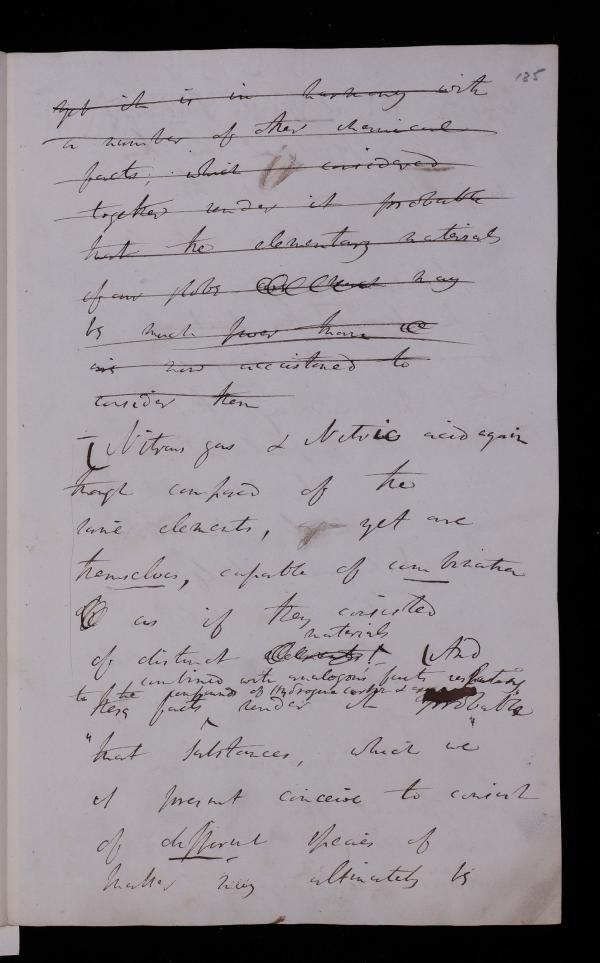 135
yet it is in harmony with
a number of other chemical
facts; which considered
together render it probable
that the elementary materials
of our globe may
be much fewer than we
are now accustomed to
consider them
Nitrous gas & Nitric acid again
though composed of the
same elements, yet are
themselves, capable of combination
as if they consisted
materials
of distinct elements! And
combined with analogous facts respecting
to the compounds of Hydrogene carbon &
these facts render it probable
"that substances, which we"
at present conceive to consist
of different species of
matter may ultimately be